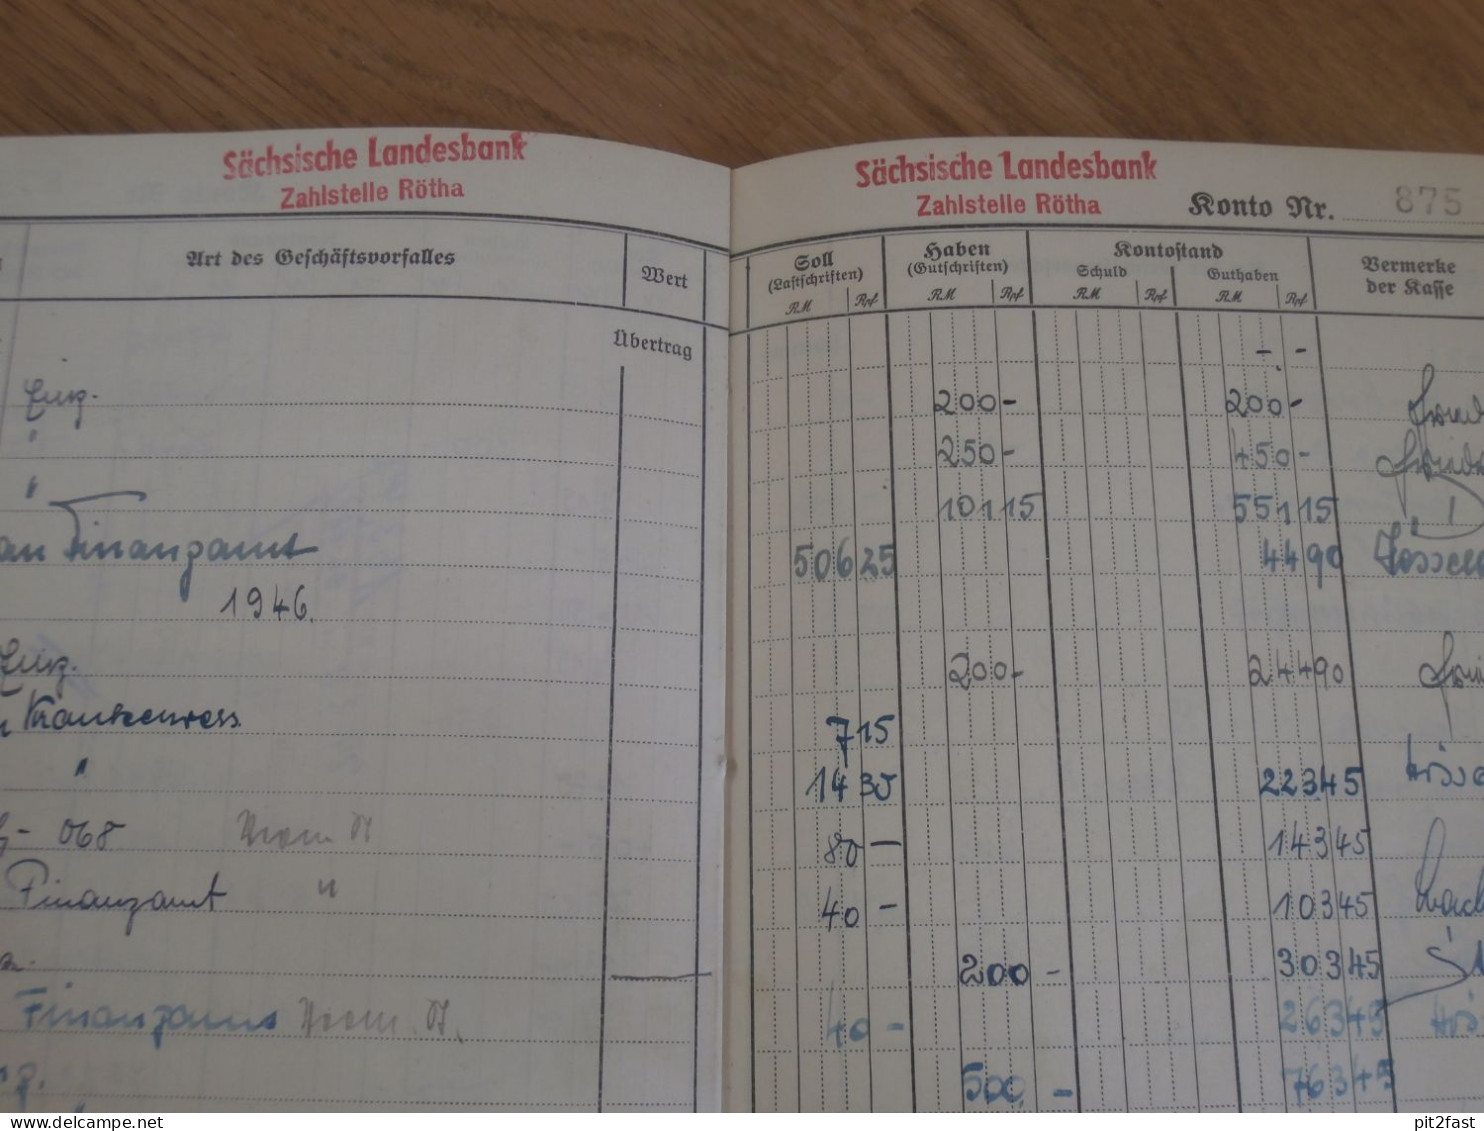 Sächsische Landesbank
Zahlstelle Rötha
Art des Geschäftsvorfalles
Wert
Übertrag
Einz.
"
"
an Finanzamt
1946.
Einz.
"
068
Finanzamt "
Finanzamt
Sächsische Landesbank
Zahlstelle Rötha
Konto Nr. 875
Soll (Lastschriften) Haben (Gutschriften) Kontostand Vermerke der Kasse
Schuld Guthaben
RM Rpf RM Rpf RM Rpf RM Rpf
- -
200 - 200 -
250 - 450 -
101 15 551 15
506 25 44 90
200 - 244 90
7 15
14 30 223 45
80 — 143 45
40 - 103 45
200 - 303 45
40 - 263 45
500 - 763 45
www.delcampe.net
pit2fast